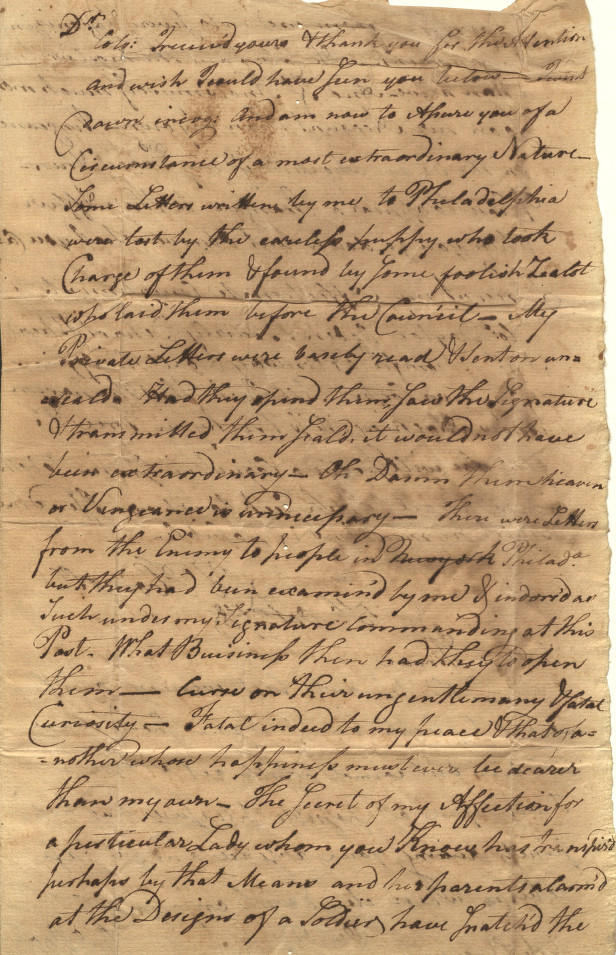 Dr.
Colo: I receiv'd yours & thank you for the Attention
and wish I could have seen you below
Down and am now to Assure you of a
Circumstance of a most extraordinary Nature—
Some Letters written by me to Philadelphia
were lost by the careless puppy who took
Charge of them & found by some foolish Zealot
who laid them before the Council — My
Private Letters were basely read & sent on un-
seald. Had they opend them, saw the Signature
& transmitted them seald, it would not have
been extraordinary — Oh Damn them heaven
or Vengeance is unnecessary — There were Letters
from the Enemy to people in Newyork Philada.
but they had been examin'd by me & indorsd as
Such under my Signature commanding at this
Post. What Buisiness then had they to open
them — Curse on their ungentlemany & fatal
Curiosity — Fatal indeed to my peace & that of a-
-nother whose happiness must ever be dearer
than my own — The Secret of my Affection for
a perticular Lady whom you Know has transpir'd
perhaps by that Means and her parents alarm'd
at the Designs of a Soldier, have snatch'd the